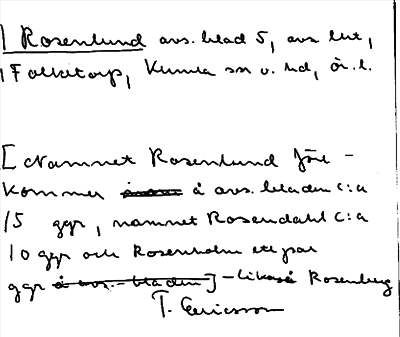 Rosenlund avs. blad 5, avs. lht,
Folketorp, Kumla sn o. hd, ör. l.
[Namnet Rosenlund före-
kommer å avs. bladen c:a
15 ggr, namnet Rosendahl c:a
10 ggr och Rosenholm ett par
ggr å avs.-bladen] - likaså Rosenberg
T. Ericsson